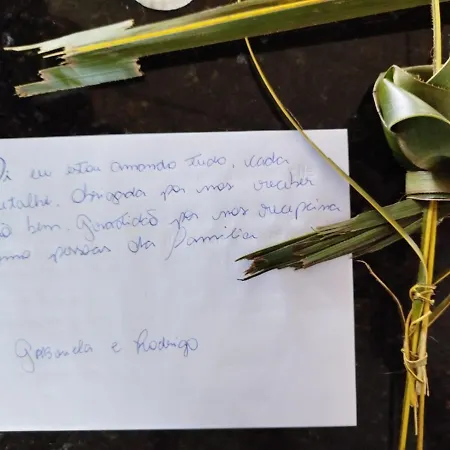 Oi eu estou amando tudo, cada
detalhe. Obrigada por nos receber
tão bem. Gratidão por nos recepciona
como pessoas da família
Gabriela e Rodrigo